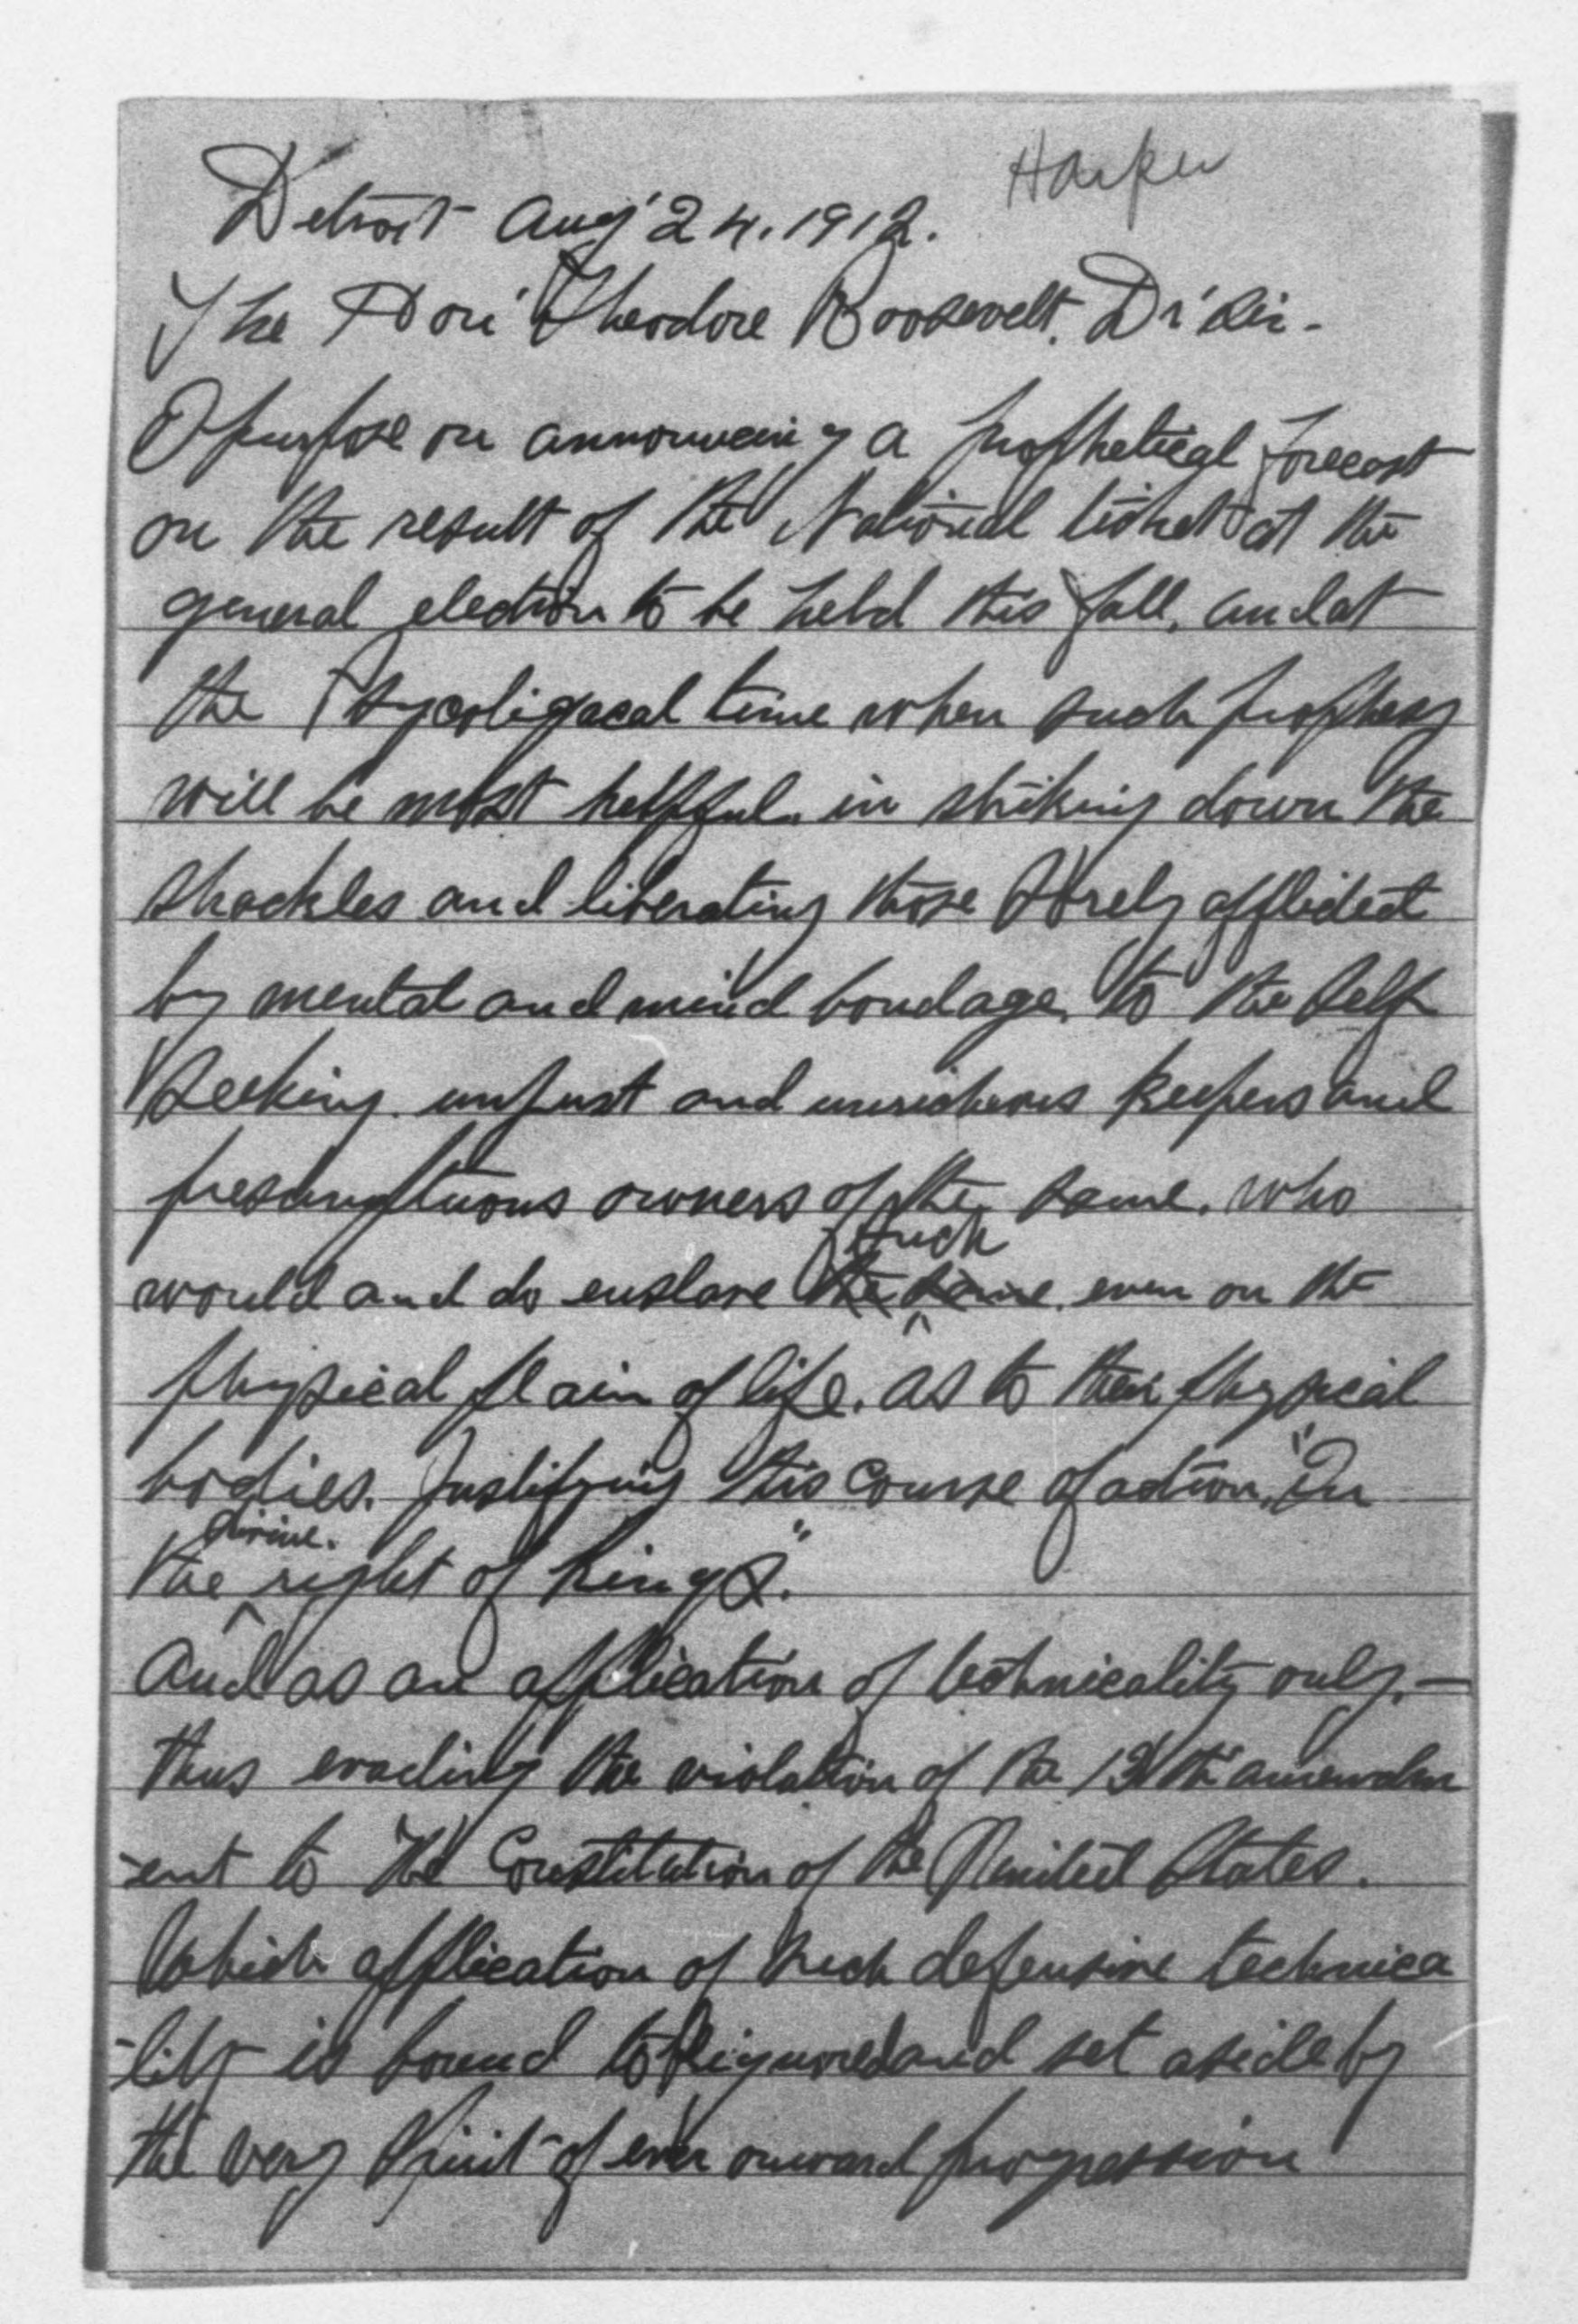 Harper
Detroit Aug' 24. 1912.
The Hon' Theodore Roosevelt. Dr' Sir -
I purpose on announceing a prophetical forecast
on the result of the National ticket at the
general election to be held this fall, and at
the Psycoligacal time when such prophesy
will be most helpful in striking down the
shackles and liberating those sorely afflicted
by mental and mind bondage, to the self
seeking unjust and keepers and
presumptuous owners of the same. who
such
would and do enslave the same even on the
physical plain of life. as to their physical
bodies. Justifying this course of action, "On
divine.
the right of kings."
And as an application of technicality only. -
thus evading the violation of the 13th amendm
-ent to the Constitution of the United States.
Which application of such defensive technica
-lity is bound to be ignored and set aside by
the very spirit of ever onward progression